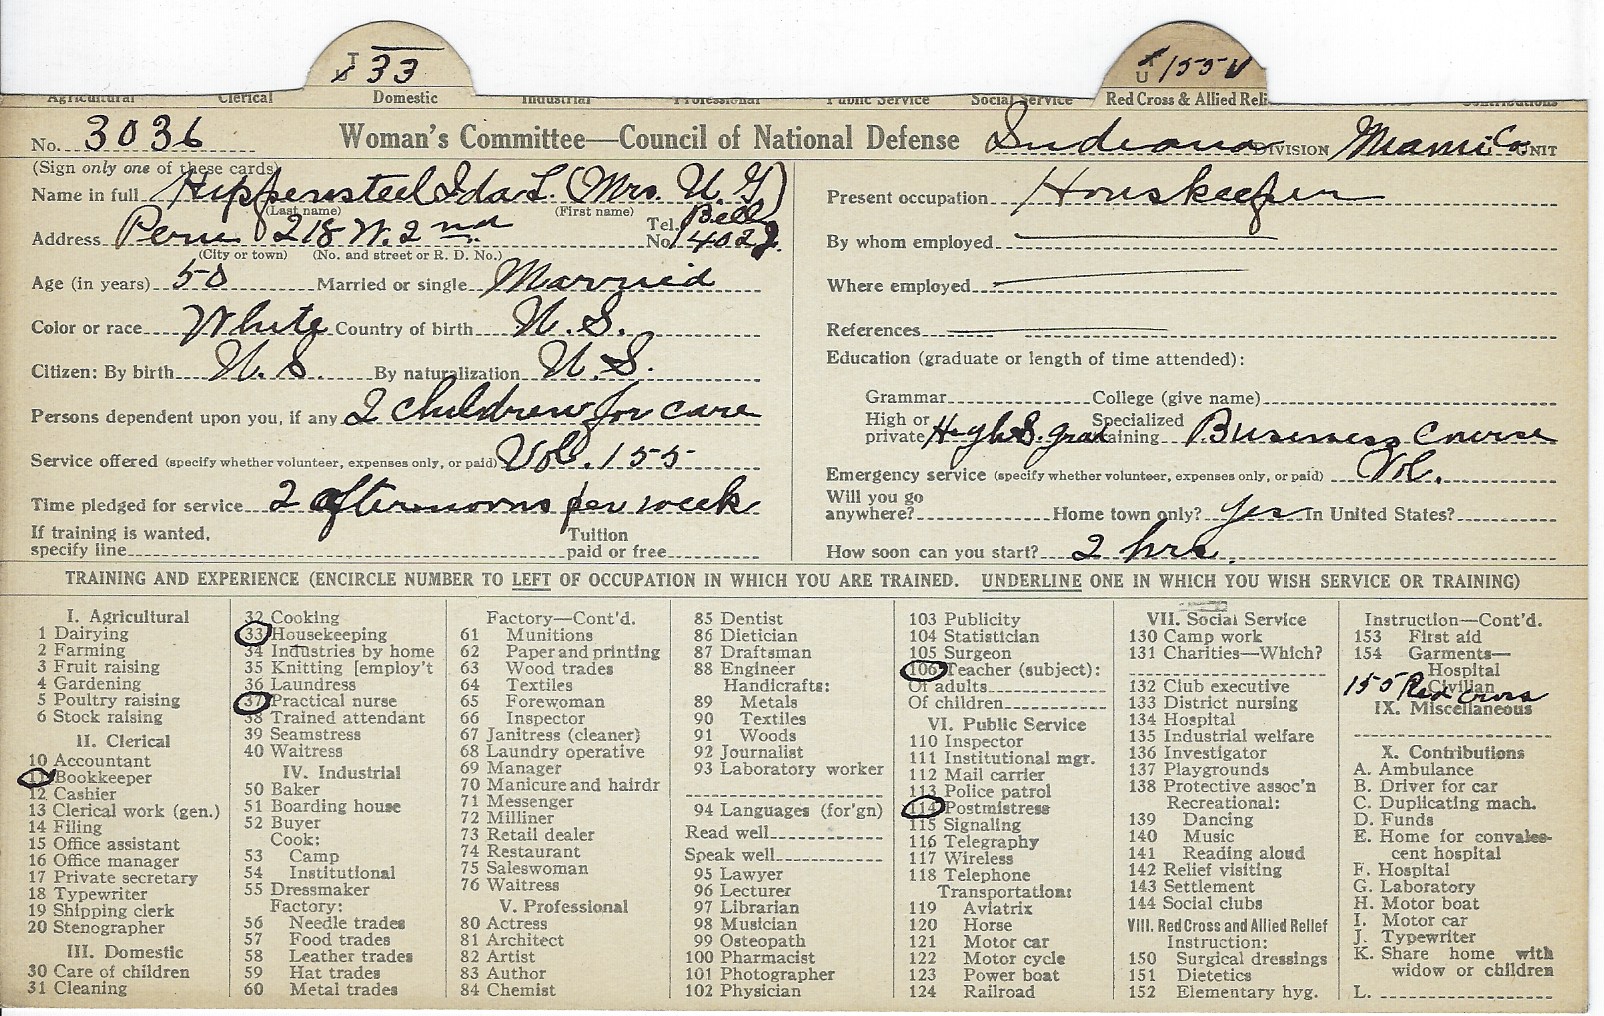 T U 33
X U 155 V
Agricultural Clerical Domestic Industrial Professional Public Service Social Service Red Cross & Allied Reli Contributions
No. 3036 Woman's Committee—Council of National Defense Indiana DIVISION Miami Co. UNIT
(Sign only one of these cards)
Name in full Hippensteel Ida L. (Mrs. U. G)
(Last name) (First name)
Address Peru 218 W. 2nd. Tel. No. Bell 1402 J.
(City or town) (No. and street or R. D. No.)
Age (in years) 50 Married or single Married
Color or race White Country of birth U. S.
Citizen: By birth U. S. By naturalization U. S.
Persons dependent upon you, if any 2 children for care
Service offered (specify whether volunteer, expenses only, or paid) Vol. 155
Time pledged for service 2 afternoons per week
If training is wanted, specify line Tuition paid or free
Present occupation Houskeeper
By whom employed
Where employed
References
Education (graduate or length of time attended):
Grammar College (give name)
High or private High S. grad Specialized training Business Course
Emergency service (specify whether volunteer, expenses only, or paid) Vol.
Will you go anywhere? Home town only? Yes In United States?
How soon can you start? 2 hrs.
TRAINING AND EXPERIENCE (ENCIRCLE NUMBER TO LEFT OF OCCUPATION IN WHICH YOU ARE TRAINED. UNDERLINE ONE IN WHICH YOU WISH SERVICE OR TRAINING)
I. Agricultural
1 Dairying
2 Farming
3 Fruit raising
4 Gardening
5 Poultry raising
6 Stock raising
II. Clerical
10 Accountant
11 Bookkeeper
12 Cashier
13 Clerical work (gen.)
14 Filing
15 Office assistant
16 Office manager
17 Private secretary
18 Typewriter
19 Shipping clerk
20 Stenographer
III. Domestic
30 Care of children
31 Cleaning
32 Cooking
33 Housekeeping
34 Industries by home
35 Knitting [employ't
36 Laundress
37 Practical nurse
38 Trained attendant
39 Seamstress
40 Waitress
IV. Industrial
50 Baker
51 Boarding house
52 Buyer
Cook:
53 Camp
54 Institutional
55 Dressmaker
Factory:
56 Needle trades
57 Food trades
58 Leather trades
59 Hat trades
60 Metal trades
Factory—Cont'd.
61 Munitions
62 Paper and printing
63 Wood trades
64 Textiles
65 Forewoman
66 Inspector
67 Janitress (cleaner)
68 Laundry operative
69 Manager
70 Manicure and hairdr
71 Messenger
72 Milliner
73 Retail dealer
74 Restaurant
75 Saleswoman
76 Waitress
V. Professional
80 Actress
81 Architect
82 Artist
83 Author
84 Chemist
85 Dentist
86 Dietician
87 Draftsman
88 Engineer
Handicrafts:
89 Metals
90 Textiles
91 Woods
92 Journalist
93 Laboratory worker
94 Languages (for'gn)
Read well
Speak well
95 Lawyer
96 Lecturer
97 Librarian
98 Musician
99 Osteopath
100 Pharmacist
101 Photographer
102 Physician
103 Publicity
104 Statistician
105 Surgeon
106 Teacher (subject):
Of adults
Of children
VI. Public Service
110 Inspector
111 Institutional mgr.
112 Mail carrier
113 Police patrol
114 Postmistress
115 Signaling
116 Telegraphy
117 Wireless
118 Telephone
Transportation:
119 Aviatrix
120 Horse
121 Motor car
122 Motor cycle
123 Power boat
124 Railroad
VII. Social Service
130 Camp work
131 Charities—Which?
132 Club executive
133 District nursing
134 Hospital
135 Industrial welfare
136 Investigator
137 Playgrounds
138 Protective assoc'n
Recreational:
139 Dancing
140 Music
141 Reading aloud
142 Relief visiting
143 Settlement
144 Social clubs
VIII. Red Cross and Allied Relief
Instruction:
150 Surgical dressings
151 Dietetics
152 Elementary hyg.
Instruction—Cont'd.
153 First aid
154 Garments—
Hospital
Civilian
155 Red Cross
IX. Miscellaneous
X. Contributions
A. Ambulance
B. Driver for car
C. Duplicating mach.
D. Funds
E. Home for convalescent hospital
F. Hospital
G. Laboratory
H. Motor boat
I. Motor car
J. Typewriter
K. Share home with widow or children
L.